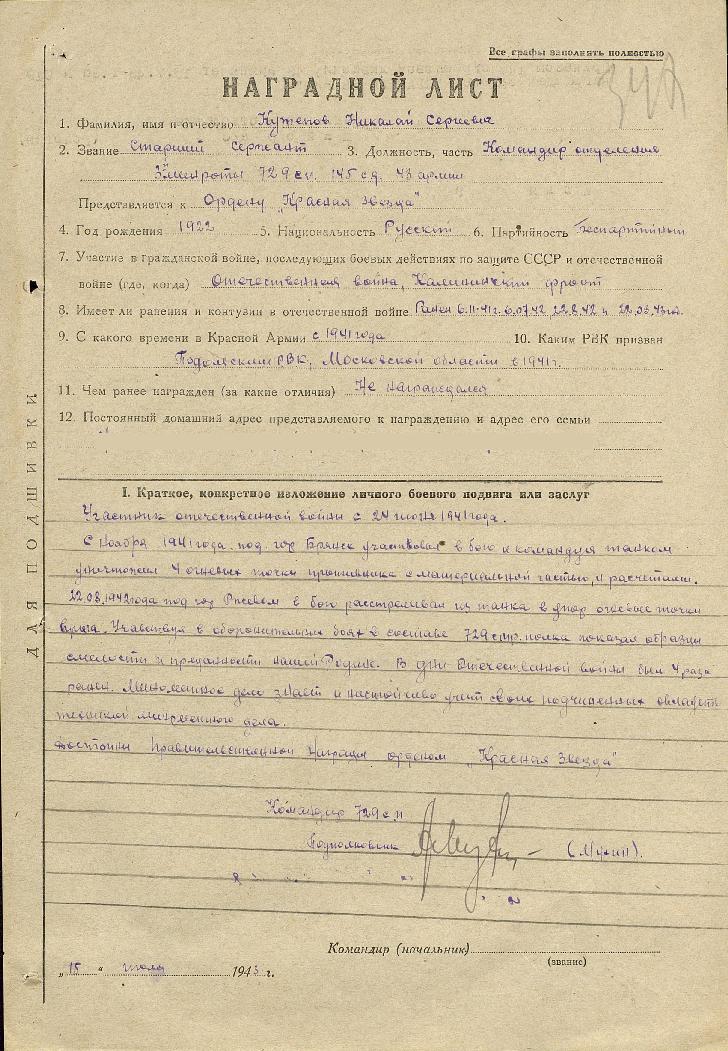 Все графы заполнять полностью
НАГРАДНОЙ ЛИСТ
1. Фамилия, имя и отчество Кутепов Николай Сергеевич
2. Звание Старший Сержант 3. Должность, часть Командир отделения
Минроты 729 сп. 145 сд. 43 армии
Представляется к Ордену „Красная звезда"
4. Год рождения 1922 5. Национальность Русский 6. Партийность Беспартийный
7. Участие в гражданской войне, последующих боевых действиях по защите СССР и отечественной
войне (где, когда) Отечественная война, Калининский фронт
8. Имеет ли ранения и контузии в отечественной войне Ранен 6.11.41г. 6.07.42 22.8.42 и 22.03.43г.
9. С какого времени в Красной Армии с 1941 года 10. Каким РВК призван
Подольским РВК, Московской области в 1941г.
11. Чем ранее награжден (за какие отличия) Не награждался
12. Постоянный домашний адрес представляемого к награждению и адрес его семьи
I. Краткое, конкретное изложение личного боевого подвига или заслуг
Участник отечественной войны с 24 июня 1941 года.
С Ноября 1941 года под гор Брянск участвовал в бою и командуя танком
уничтожил 4 огневых точки противника с материальной частью, и расчетами.
22.08.1942 года под гор Ржевом в бою расстреливал из танка в упор огневые точки
врага. Участвуя в оборонительных боях в составе 729 стр. полка показал образцы
смелости и преданности нашей Родине. В дни Отечественной войны был 4 раза
ранен. Минометное дело знает и настойчиво учит своих подчиненных овладеть
техникой минометного дела.
Достоин Правительственной Награды орденом „Красная Звезда"
Командир 729 сп
Подполковник (Мухин).
Командир (начальник)
(звание)
„15" июля 1943 г.
ДЛЯ ПОДШИВКИ